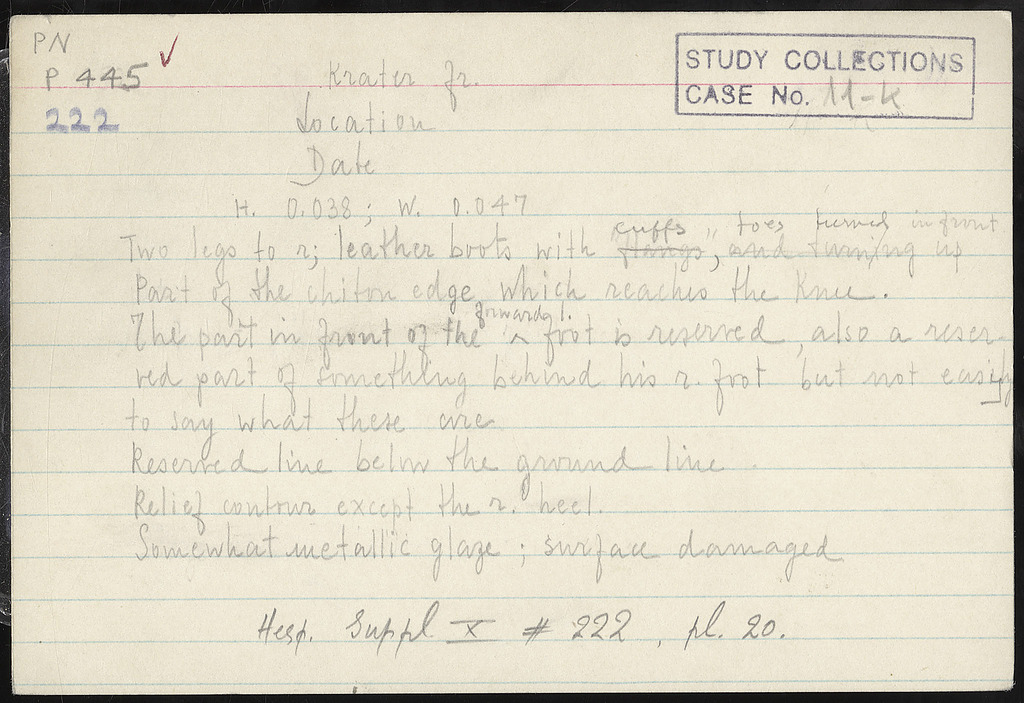 PN
P 445 ✓
222
STUDY COLLECTIONS
CASE No. 11-k
Krater fr.
Location
Date
H. 0.038; W. 0.047
cuffs, toes turned in front
Two legs to r; leather boots with flangs, and turning up
Part of the chiton edge which reaches the Knee.
forward l.
The part in front of the ^ foot is reserved, also a reser-
ved part of something behind his r. foot but not easily
to say what these are
Reserved line below the ground line.
Relief contour except the r. heel.
Somewhat metallic glaze; surface damaged
Hesp. Suppl. X # 222, pl. 20.